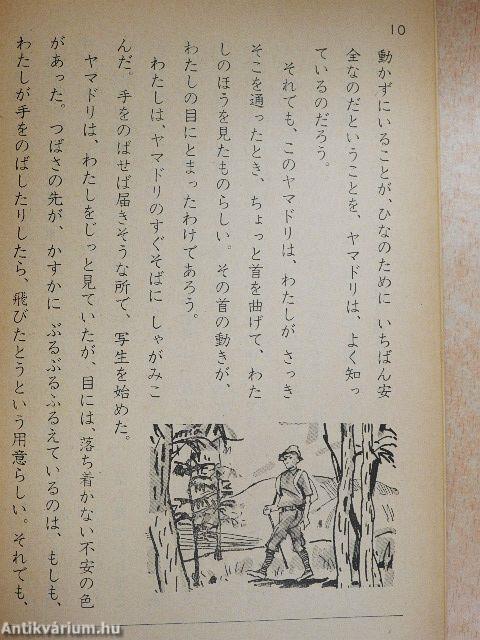 10
動かずにいることが、ひなのために いちばん安
全なのだということを、ヤマドリは、よく知っ
ているのだろう。
それでも、このヤマドリは、わたしが さっき
そこを通ったとき、ちょっと首を曲げて、わた
しのほうを見たものらしい。その首の動きが、
わたしの目にとまったわけであろう。
わたしは、ヤマドリのすぐそばに しゃがみこ
んだ。手をのばせば届きそうな所で、写生を始めた。
ヤマドリは、わたしをじっと見ていたが、目には、落ち着かない不安の色
があった。つばさの先が、かすかに ぶるぶるふるえているのは、もしも、
わたしが手をのばしたりしたら、飛びたとうという用意らしい。それでも、
Antikvárium.hu